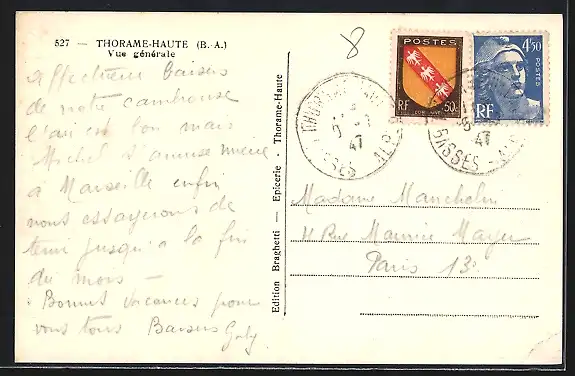 527 — THORAME-HAUTE (B.-A.)
Vue générale
8
Affectueux baisers
de notre
l'air est bon mais
Michel s'amuse mieux
à Marseille enfin
nous essayerons de
tenir jusqu'à la fin
du mois —
Bonnes vacances pour
vous tous Baisers Gaby
Edition Braghetti — Epicerie - Thorame-Haute
POSTES
RF
50c
LORRAINE
4F50
POSTES
RF
THORAME-HAUTE
47
BASSES-ALPES
47
BASSES-ALPES
Madame Manchelin
11 Rue Maurice Mayer
Paris 13e